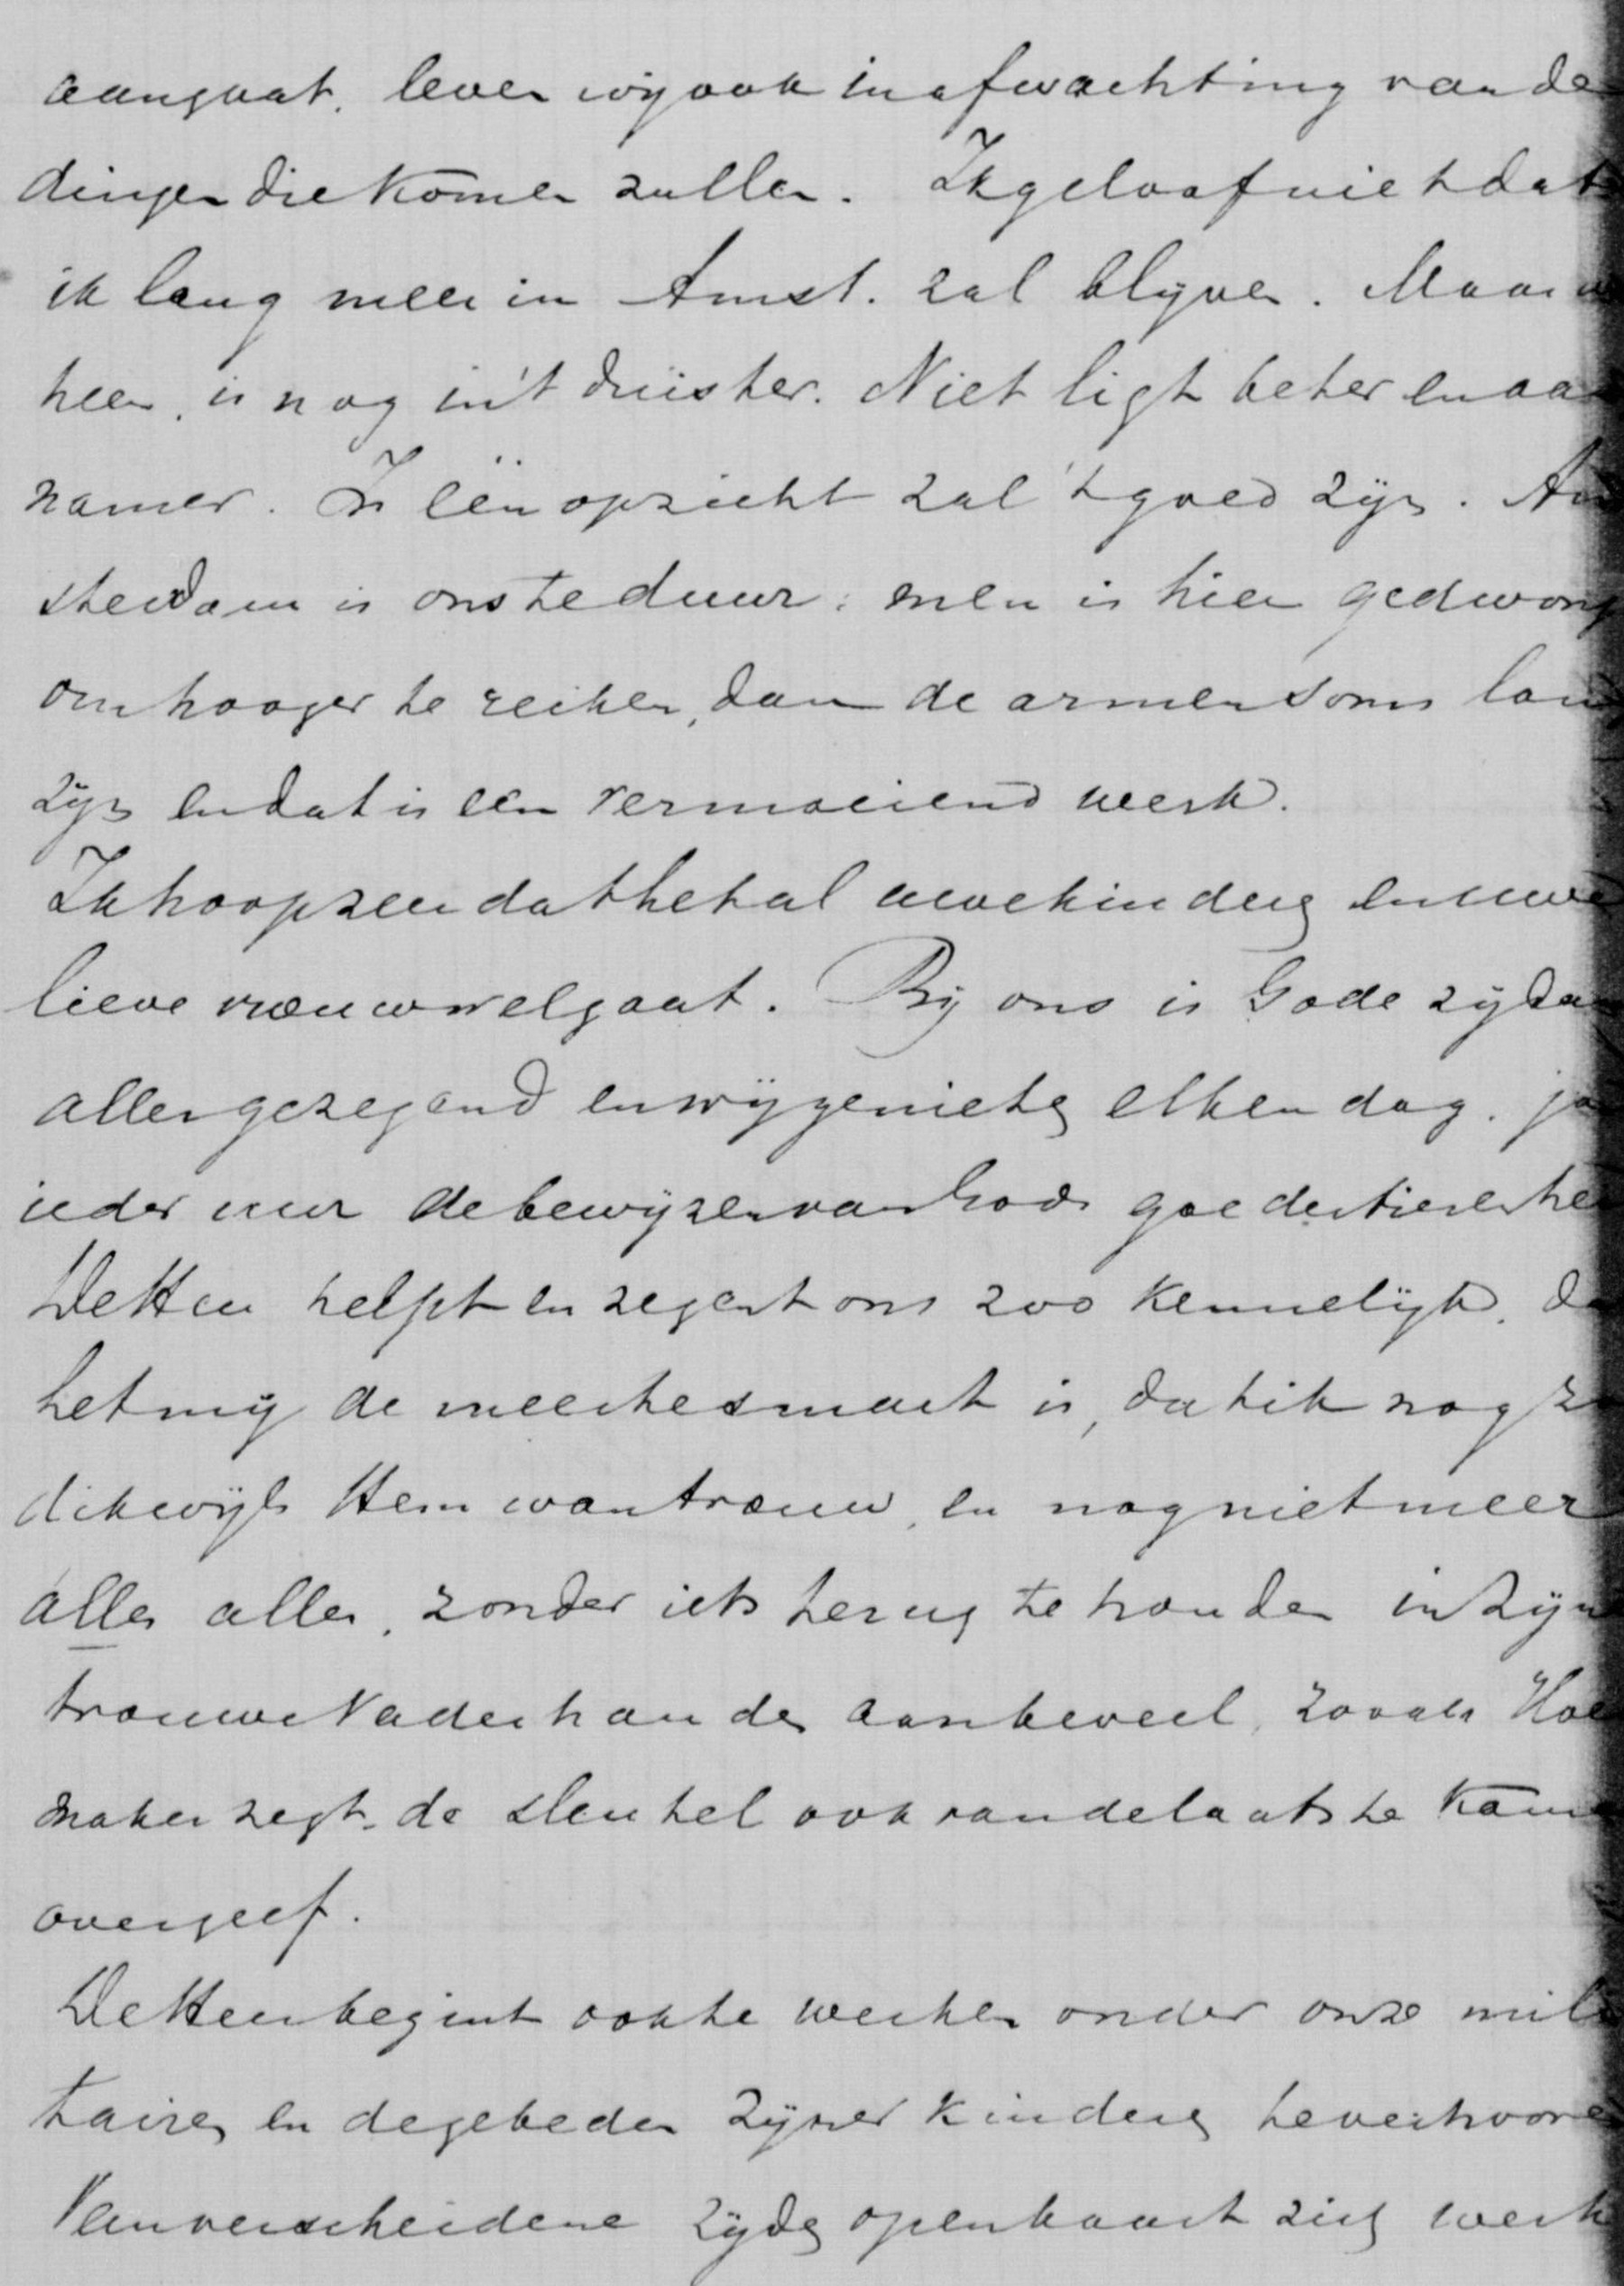 aangaat, leven wij ook in afwachting van de
dingen die komen zullen. Ik geloof niet dat
ik lang meer in Amst. zal blyven. Maar
heen, is nog in 't duister. Niet ligt beter en aa
namer. In één opzicht zal 't goed zijn. Am
sterdam is ons te duur; men is hier gedwong
om hooger te reiken, dan de armen soms lan
zijn en dat is een vermoeiend werk.
Ik hoop zeer dat het al uwe kinderen en uwe
lieve vrouw wel gaat. Bij ons is Gode zij da
allen gezegend en wij genieten elken dag, ja
ieder uur de bewijzen van Gods goedertierenhe
De Heer helpt en zegent ons zoo kennelijk, da
het mij de meeste smart is, dat ik nog zo
dikwijls Hem wantrouw, en nog niet meer
alles alles, zonder iets terug te houden in Zijn
trouwe Vaderhanden aanbeveel, zooals Hoe
maker zegt, de sleutel ook van de laatste kam
overgeef.
De Heer begint ook te werken onder onze mili
tairen en de gebeden Zijner kinderen te verhoore
Van verscheidene zijden openbaart zich werk